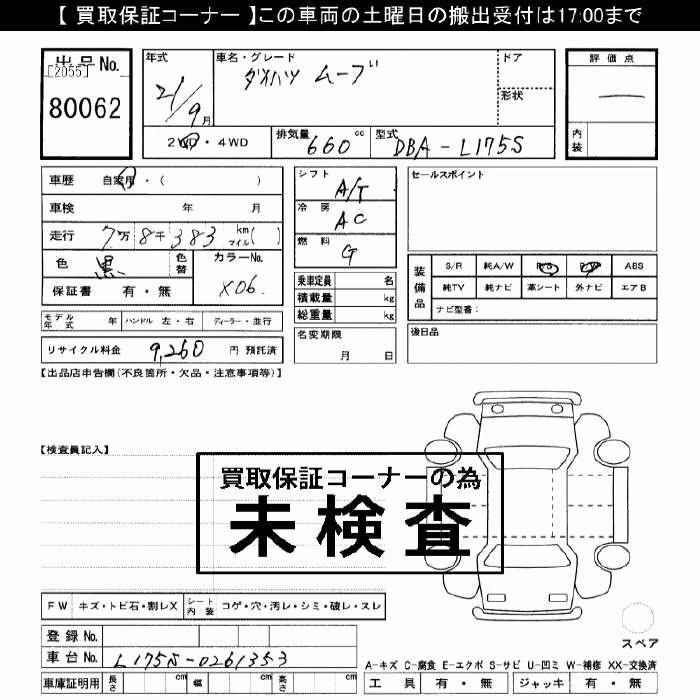 【 買取保証コーナー 】この車両の土曜日の搬出受付は17:00まで
出品No.
[2055]
80062
年式
21/9月
車名・グレード
ダイハツ ムーブ
ドア
形状
評価点
内装
2WD・4WD
排気量 660 cc
型式 DBA-L175S
車歴 自家用・( )
車検 年 月
走行 7万8千383 km マイル( )
色 黒 色替
カラーNo. X06
保証書 有・無
シフト A/T
冷房 AC
燃料 G
乗車定員 名
積載量 kg
総重量 kg
セールスポイント
装備品
S/R 純A/W P/S P/W ABS
純TV 純ナビ 革シート 外ナビ エアB
ナビ型番:
モデル年式 年 ハンドル 左・右 ディーラー・並行
リサイクル料金 9,260 円 預託済
名変期限
月 日
後日品
【出品店申告欄(不良箇所・欠品・注意事項等)】
【検査員記入】
買取保証コーナーの為
未検査
FW キズ・トビ石・割レX シート内装 コゲ・穴・汚レ・シミ・破レ・スレ
スペア
登録No.
車台No. L175S-0261353
車庫証明用 長さ cm 幅 cm 高さ cm
A-キズ C-腐食 E-エクボ S-サビ U-凹ミ W-補修 XX-交換済
工具 有・無 ジャッキ 有・無